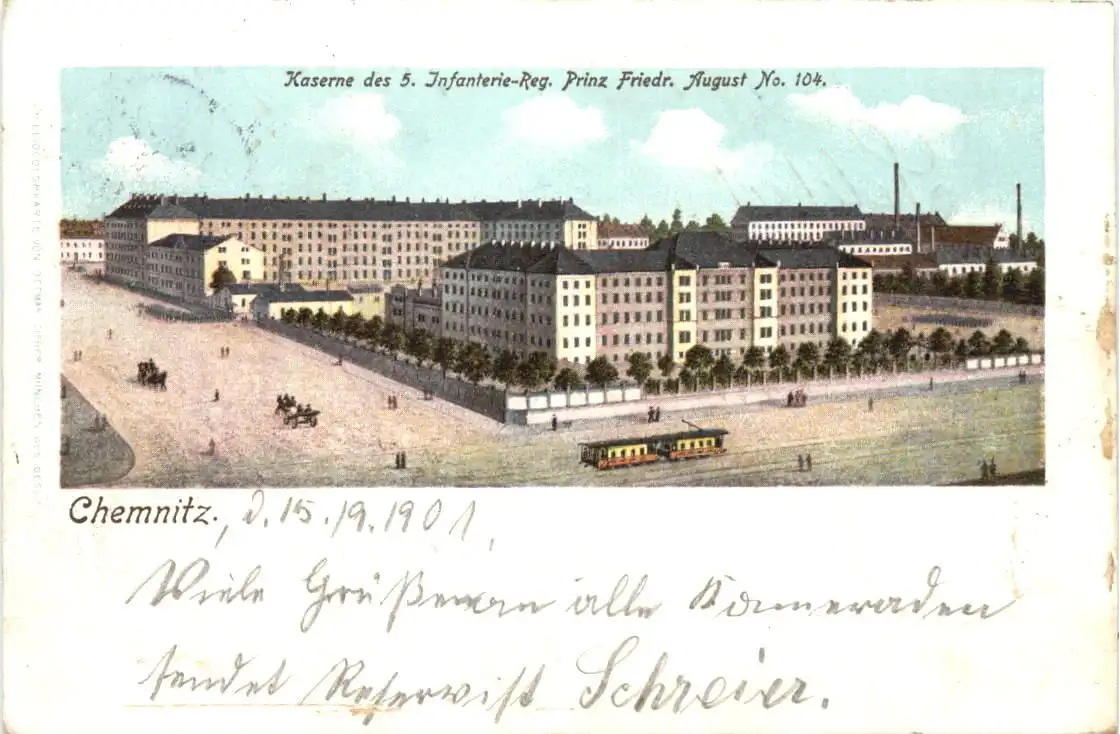 Kaserne des 5. Infanterie-Reg. Prinz Friedr. August No. 104.
Chemnitz., d. 15./9.1901,
Viele Grüße an alle Kameraden
sendet Reservist Schreier.